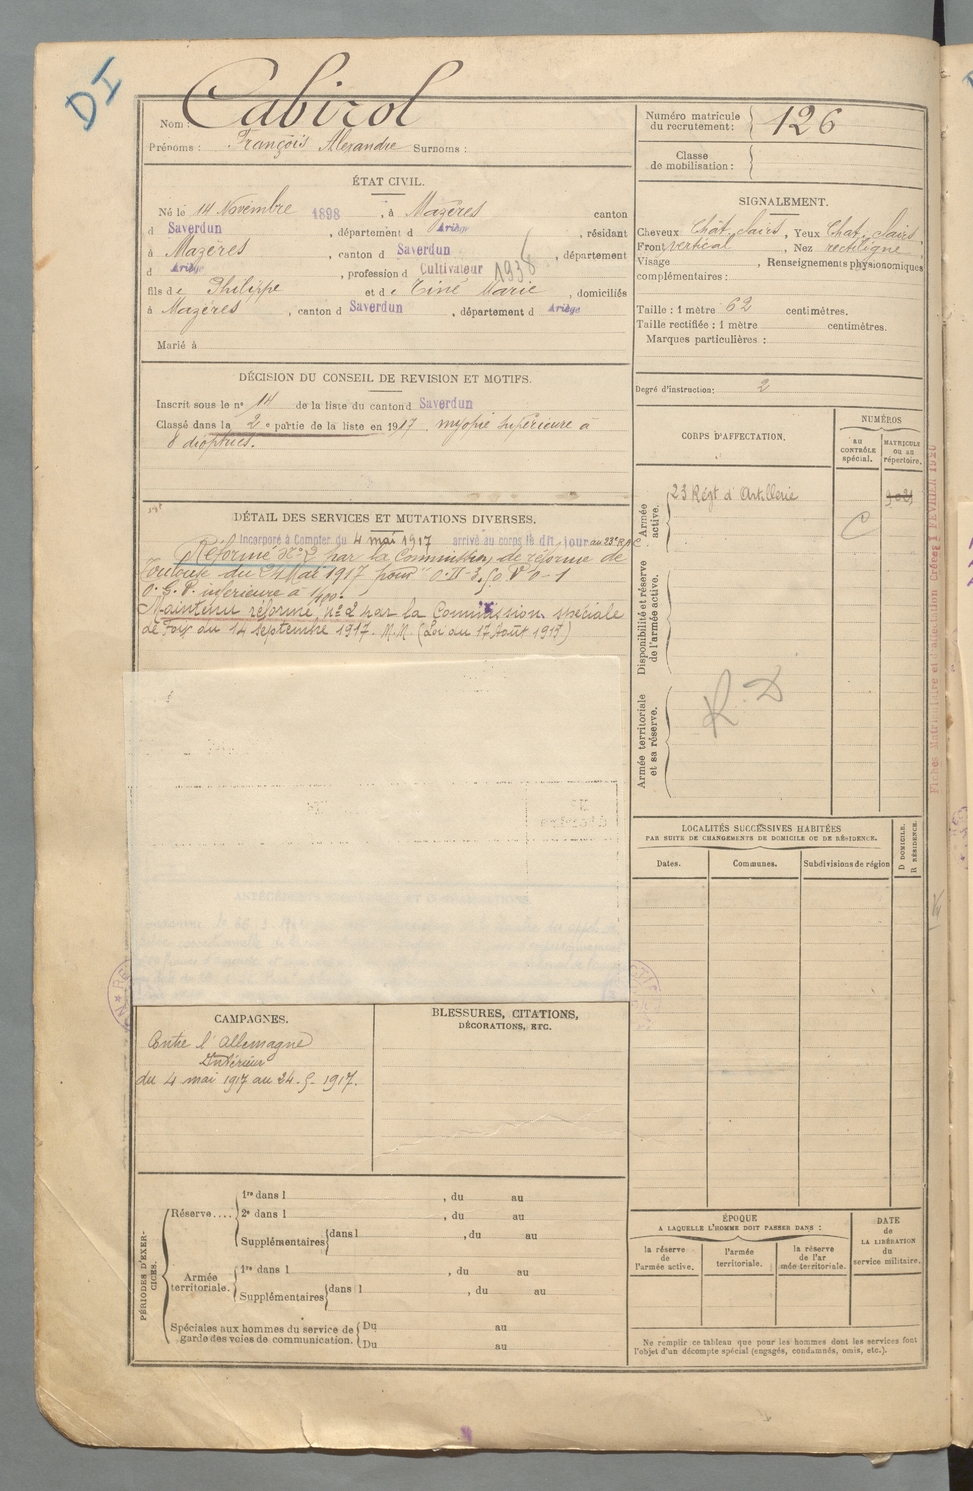 DI
Nom : Cabirol
Prénoms : François Alexandre Surnoms :
ÉTAT CIVIL.
Né le 14 Novembre 1898 , à Mazères canton
d Saverdun , département d Ariège , résidant
à Mazères , canton d Saverdun , département
d Ariège , profession d Cultivateur 1938
fils de Philippe et de Tiné Marie , domiciliés
à Mazères , canton d Saverdun , département d Ariège
Marié à
DÉCISION DU CONSEIL DE REVISION ET MOTIFS.
Inscrit sous le nº 14 de la liste du canton d Saverdun
Classé dans la 2 e partie de la liste en 1917 . myopie supérieure à
8 dioptries.
DÉTAIL DES SERVICES ET MUTATIONS DIVERSES.
Incorporé à Compter du 4 mai 1917 arrivé au corps le dit jour au 23e R.A.C
Réformé Nº 2 par la Commission de réforme de
Toulouse du 24 Mai 1917 pour
O. G. V. inférieure à
Maintenu réformé nº 2 par la Commission spéciale
de Foix du 14 septembre 1917. N.N. (Loi du 17 Août 1917)
ANTÉCÉDENTS ET CONDAMNATIONS.
CAMPAGNES.
Contre l'Allemagne
Intérieur
du 4 mai 1917 au 24-5-1917.
BLESSURES, CITATIONS,
DÉCORATIONS, ETC.
PÉRIODES D'EXERCICES.
Réserve....
1re dans l , du au
2e dans l , du au
Supplémentaires dans l , du au
Armée territoriale.
1re dans l , du au
Supplémentaires dans l , du au
Spéciales aux hommes du service de garde des voies de communication.
Du au
Du au
Numéro matricule du recrutement : 126
Classe de mobilisation :
SIGNALEMENT.
Cheveux Chât. clairs , Yeux Chat. clairs ,
Front vertical , Nez rectiligne ,
Visage , Renseignements physionomiques
complémentaires :
Taille : 1 mètre 62 centimètres.
Taille rectifiée : 1 mètre centimètres.
Marques particulières :
Degré d'instruction : 2
CORPS D'AFFECTATION.
NUMÉROS
au CONTRÔLE spécial.
MATRICULE ou au répertoire.
Armée active.
23 Régt d'Artillerie
C
Disponibilité et réserve de l'armée active.
Armée territoriale et sa réserve.
R. D
LOCALITÉS SUCCESSIVES HABITÉES
PAR SUITE DE CHANGEMENTS DE DOMICILE OU DE RÉSIDENCE.
Dates.
Communes.
Subdivisions de région
D DOMICILE.
R RÉSIDENCE.
ÉPOQUE
A LAQUELLE L'HOMME DOIT PASSER DANS :
la réserve de l'armée active.
l'armée territoriale.
la réserve de l'armée territoriale.
DATE de LA LIBÉRATION du service militaire.
Ne remplir ce tableau que pour les hommes dont les services font
l'objet d'un décompte spécial (engagés, condamnés, omis, etc.).